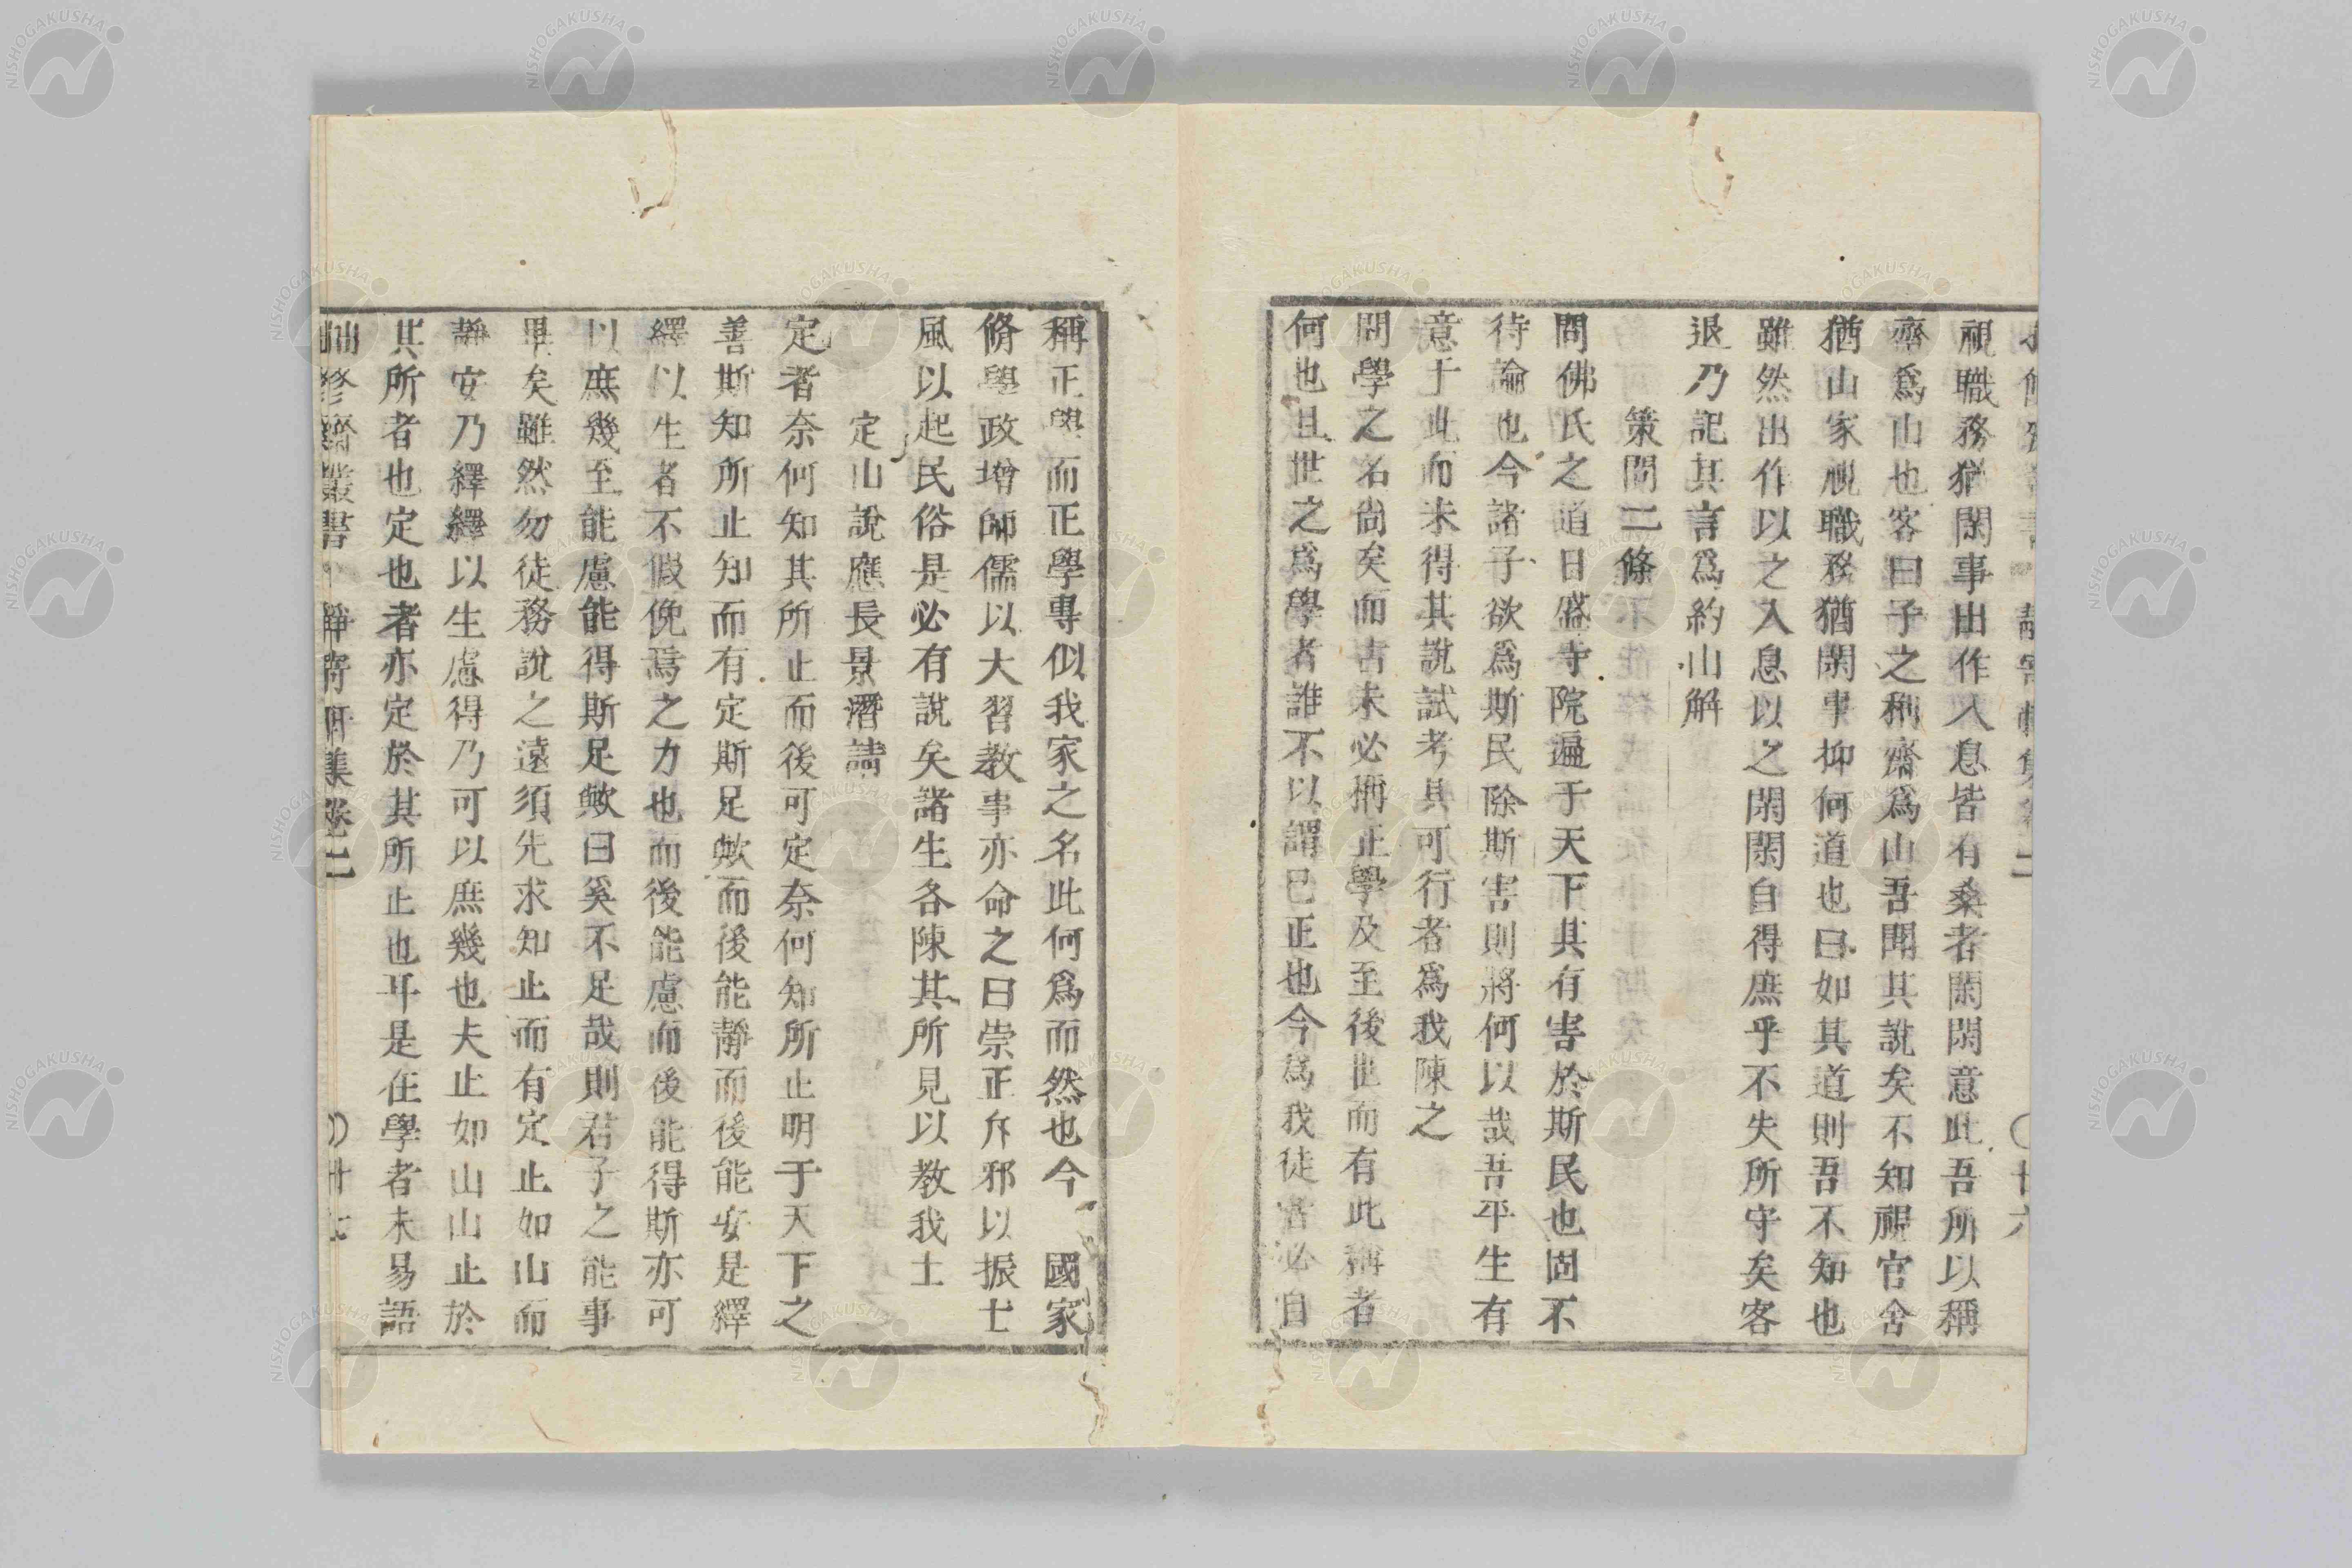 視職務猶閑事出作入息皆有桑者閑閑意此吾所以稱
齋爲山也客曰子之稱齋爲山吾聞其說矣不知視官舍
猶山家視職務猶閑事抑何道也曰如其道則吾不知也
雖然出作以之入息以之閑閑自得庶乎不失所守矣客
退乃記其言爲約山解
策問二條
問佛氏之道日盛寺院遍于天下其有害於斯民也固不
待論也今諸子欲爲斯民除斯害則將何以哉吾平生有
意于此而未得其說試考其可行者爲我陳之
問學之名尚矣而古未必稱正學及至後世而有此稱者
何也且世之爲學者誰不以謂己正也今爲我徒者必自
稱正學而正學專似我家之名此何爲而然也今 國家
脩學政增師儒以大習教事亦命之曰崇正斥邪以振士
風以起民俗是必有說矣諸生各陳其所見以教我士
定山說應長景潛請
定者奈何知其所止而後可定奈何知所止明于天下之
善斯知所止知而有定斯足歟而後能靜而後能安是繹
繹以生者不假俛焉之力也而後能慮而後能得斯亦可
以庶幾至能慮能得斯足歟曰奚不足哉則君子之能事
畢矣雖然勿徒務說之遠須先求知止而有定止如山而
靜安乃繹繹以生慮得乃可以庶幾也夫止如山山止於
其所者也定也者亦定於其所止也耳是在學者未易語
修齋叢書 靜寄軒集卷二 廿七